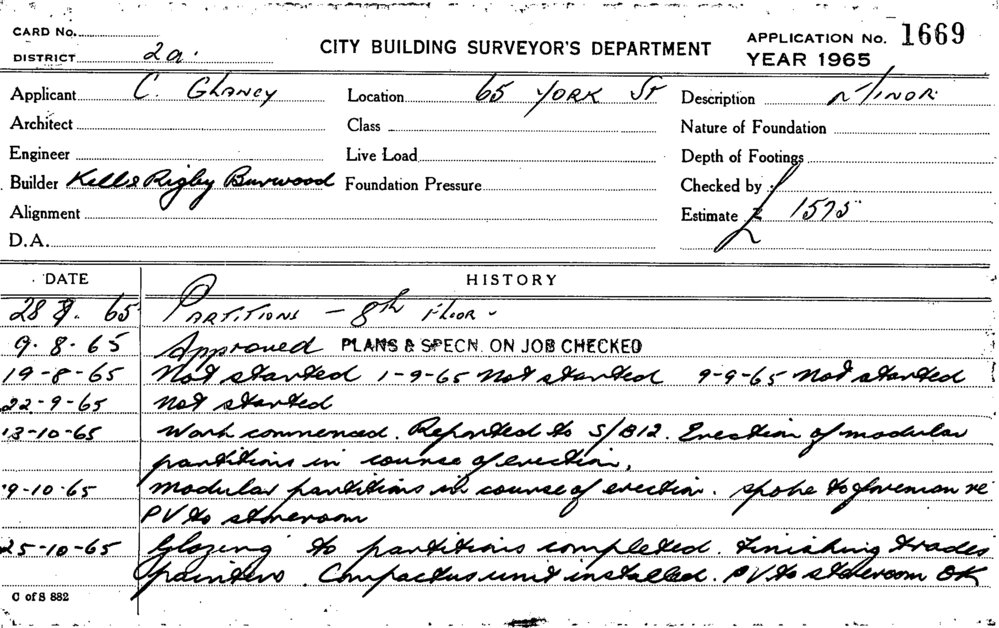 CARD No.
DISTRICT 2a.
CITY BUILDING SURVEYOR'S DEPARTMENT
APPLICATION No. 1669
YEAR 1965
Applicant C. Glancy Location 65 YORK St Description MINOR
Architect Class Nature of Foundation
Engineer Live Load Depth of Footings
Builder Kell & Rigby Burwood Foundation Pressure Checked by
Alignment Estimate £ 1575
D.A.
DATE HISTORY
65 PARTITIONS - 8th Floor -
9.8.65 Approved PLANS & SPECN. ON JOB CHECKED
19-8-65 Not started 1-9-65 Not started 9-9-65 Not started
22-9-65 Not started
13-10-65 Work commenced. Reported to S/B12. Erection of modular
partitions in course of erection.
9-10-65 Modular partitions in course of erection. Spoke to foreman re
PV to storeroom
25-10-65 Glazing to partitions completed. Finishing trades
painters. Compactus unit installed. PV to storeroom OK
C of S 882